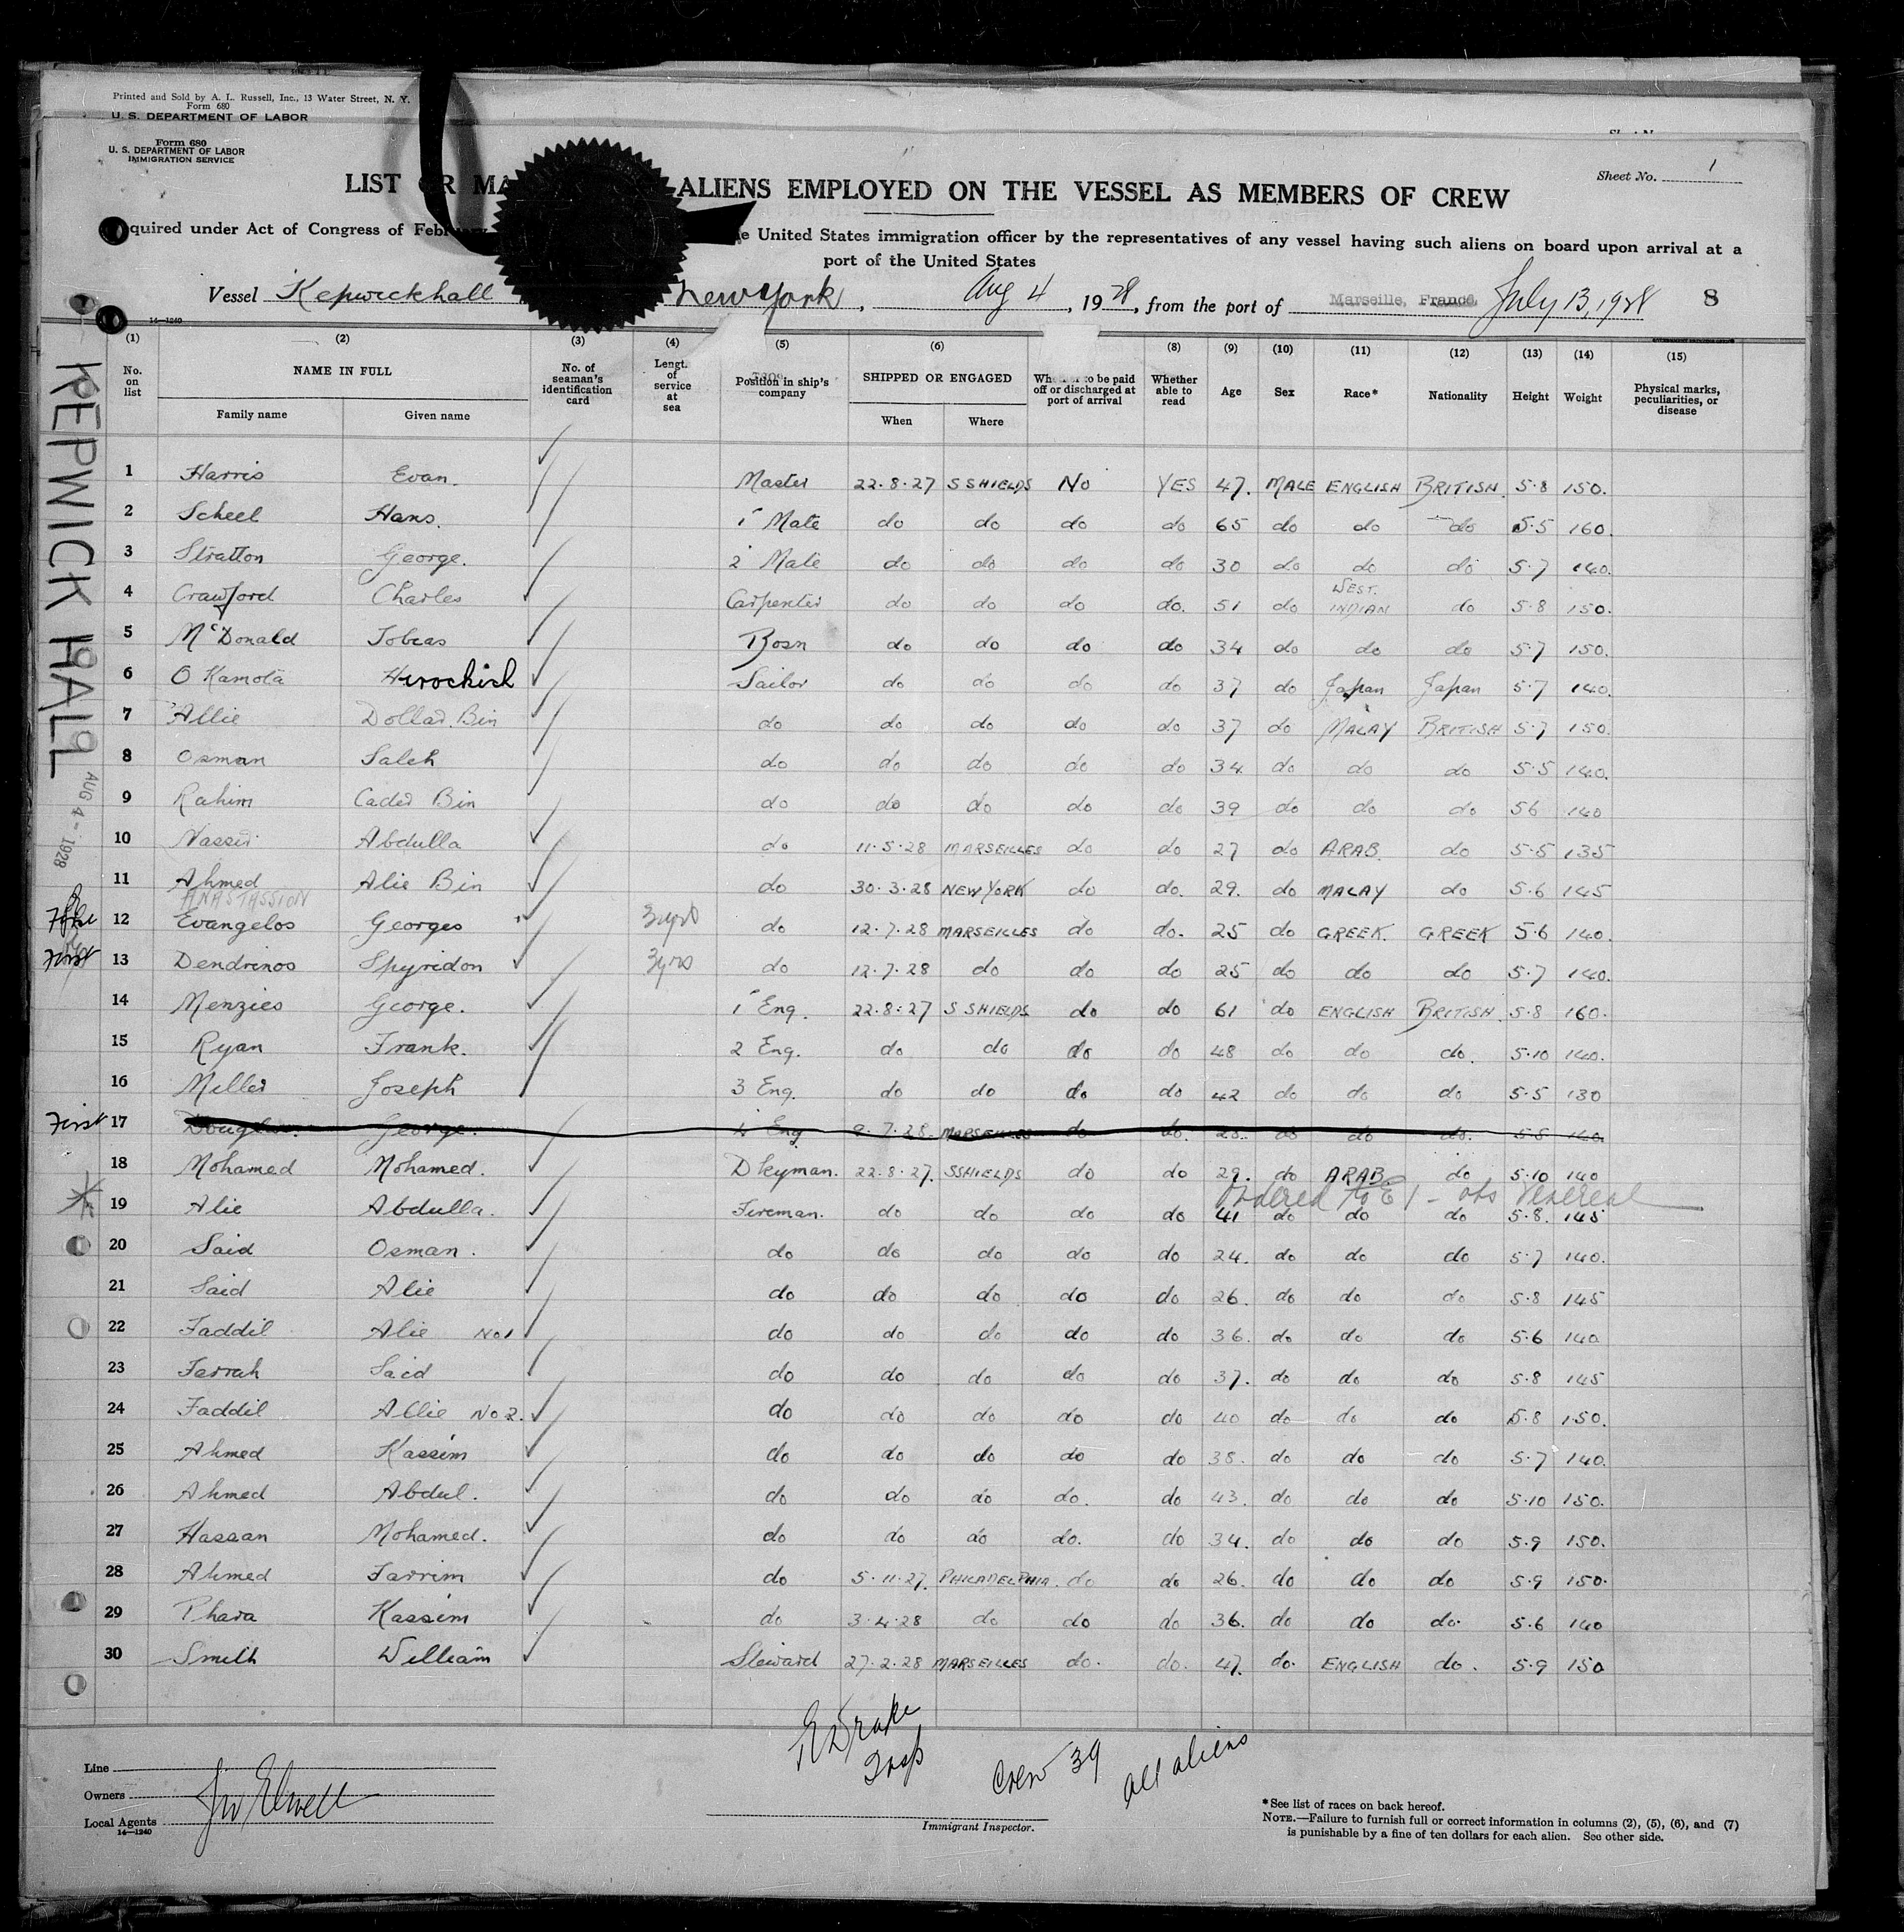 Printed and Sold by A. L. Russell, Inc., 13 Water Street, N. Y.
Form 680
U. S. DEPARTMENT OF LABOR
Form 680
U. S. DEPARTMENT OF LABOR
IMMIGRATION SERVICE
Sheet No. 1
LIST OR MA ALIENS EMPLOYED ON THE VESSEL AS MEMBERS OF CREW
quired under Act of Congress of February United States immigration officer by the representatives of any vessel having such aliens on board upon arrival at a
port of the United States
Vessel Kepwickhall New York, Aug 4, 1928, from the port of Marseille, France, July 13, 1928 8
14—1240
(1) (2) (3) (4) (5) (6) (8) (9) (10) (11) (12) (13) (14) (15)
No. on list NAME IN FULL No. of seaman's identification card Lengt. of service at sea Position in ship's company SHIPPED OR ENGAGED to be paid off or discharged at port of arrival Whether able to read Age Sex Race* Nationality Height Weight Physical marks, peculiarities, or disease
Family name Given name When Where
1 Harris Evan. Master 22.8.27 S SHIELDS No YES 47. MALE ENGLISH BRITISH. 5.8 150.
2 Scheel Hans. 1 Mate do do do do 65 do do do 5.5 160.
3 Stratton George. 2 Mate do do do do 30 do do do 5.7 140.
4 Crawford Charles Carpenter do do do do. 51 do WEST. INDIAN do 5.8 150.
5 McDonald Tobias Bosn do do do do 34 do do do 5.7 150.
6 O Kamota Hirochich Sailor do do do do 37 do Japan Japan 5.7 140.
7 Allie Dollad Bin do do do do do 37 do MALAY BRITISH 5.7 150.
8 Osman Saleh do do do do do 34 do do do 5.5 140.
9 Rahim Cader Bin do do do do do 39 do do do 5 6 140
10 Nasser Abdulla do 11.5.28 MARSEILLES do do 27 do ARAB. do 5.5 135
11 Ahmed Alie Bin do 30.3.28 NEW YORK do do. 29. do MALAY do 5.6 145
ANASTASSION
12 Evangelos Georges do 12.7.28 MARSEILLES do do. 25 do GREEK. GREEK 5.6 140.
First 13 Dendrinos Spyridon 3yrs do 12.7.28 do do do 25 do do do 5.7 140.
14 Menzies George. 1 Eng. 22.8.27 S SHIELDS do do 61 do ENGLISH BRITISH. 5.8 160.
15 Ryan Frank. 2 Eng. do do do do 48 do do do. 5.10 140.
16 Miller Joseph 3 Eng. do do do do 42 do do do 5.5 130
First 17 Douglas. George. 4 Eng 9.7.28. MARSEILLES do do. 25. do do do. 5.5 140.
18 Mohamed Mohamed. Dkeyman. 22.8.27. SSHIELDS do do 29. do ARAB do 5.10 140
Ordered to E I - obs Venereal
19 Alie Abdulla. Fireman. do do do do 41 do do do 5.8. 145
20 Said Osman. do do do do do 24. do do do 5.7 140.
21 Said Alie do do do do do 26. do do do 5.8 145
22 Faddil Alie No 1 do do do do do 36. do do do 5.6 140
23 Farrah Said do do do do do 37. do do do 5.8 145
24 Faddil Allie No 2. do do do do do 40 do do do 5.8 150.
25 Ahmed Kassim do do do do do 38. do do do 5.7 140.
26 Ahmed Abdul. do do do do. do 43. do do do 5.10 150.
27 Hassan Mohamed. do do do do. do 34. do do do 5.9 150.
28 Ahmed Farrim do 5.11.27. PHILADELPHIA. do do 26. do do do 5.9 150.
29 Phara Kassim do 3.4.28 do do do 36. do do do. 5.6 140
30 Smith William Steward 27.2.28 MARSEILLES do. do. 47. do. ENGLISH do. 5.9 150
KEPWICK HALL
AUG 4 - 1928
Drake
Insp
Crew 39
all aliens
Line
Owners
Local Agents
14—1240
Immigrant Inspector.
*See list of races on back hereof.
NOTE.—Failure to furnish full or correct information in columns (2), (5), (6), and (7)
is punishable by a fine of ten dollars for each alien. See other side.